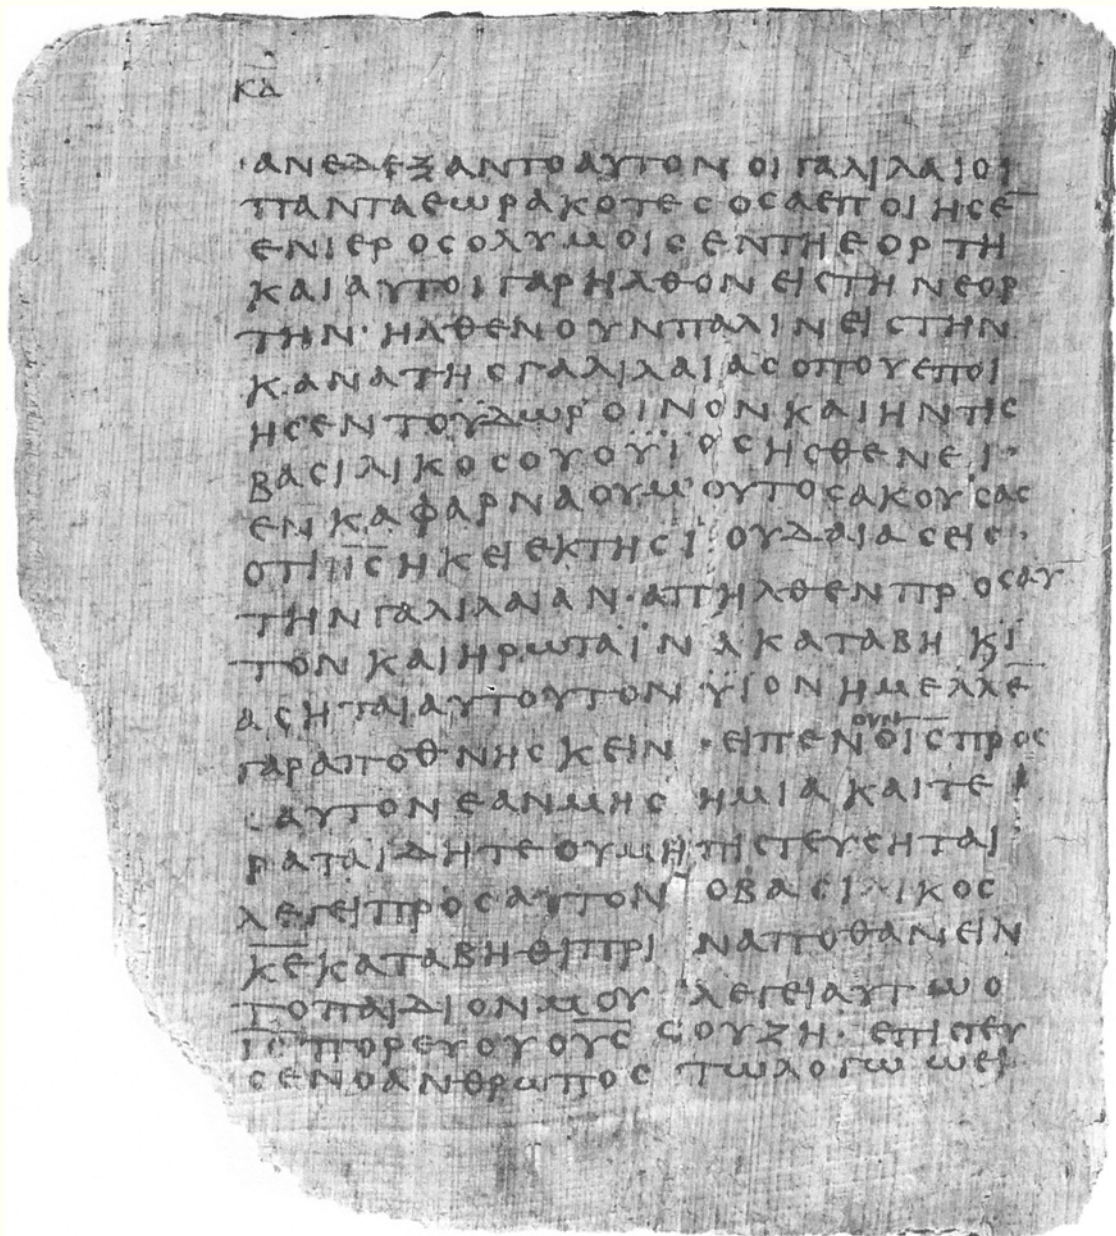 κ̅δ̅
·ανεδεξαντοαυτονοιγαλιλαιοι
πανταεωρακοτεσοσαεποιησε̅
ενιεροσολυμοισεντηεορτη
καιαυτοιγαρηλθονειστηνεορ
την·ηλθενουνπαλινειστην
κανατησγαλιλαιασοπουεποι
ησεντοϋδωροινονκαιηντισ
βασιλικοσουοϋϊοσησθενει·
ενκαφαρναουμ'ουτοσακουσασ
οτιι̅σ̅ηκειεκτησϊουδαιασεισ·
τηνγαλιλαιαν·απηλθενπροσαυ
τονκαιηρωταϊνακαταβηκϊ
ασηταιαυτουτονϋιονημελλε̅
γαραποθνησκειν·ειπενουνοι̅σ̅προσ
·αυτονεανμησημιακαιτε
ραταιδητεουμηπιστευσηται
λεγειπροσαυτονοβασιλικοσ
κ̅ε̅καταβηθιπριναποθανειν
τοπαιδιονμουλεγειαυτωο
ι̅σ̅πορευουου̅σ̅σουζη·επιστευ
σενοανθρωποστωλογωωει